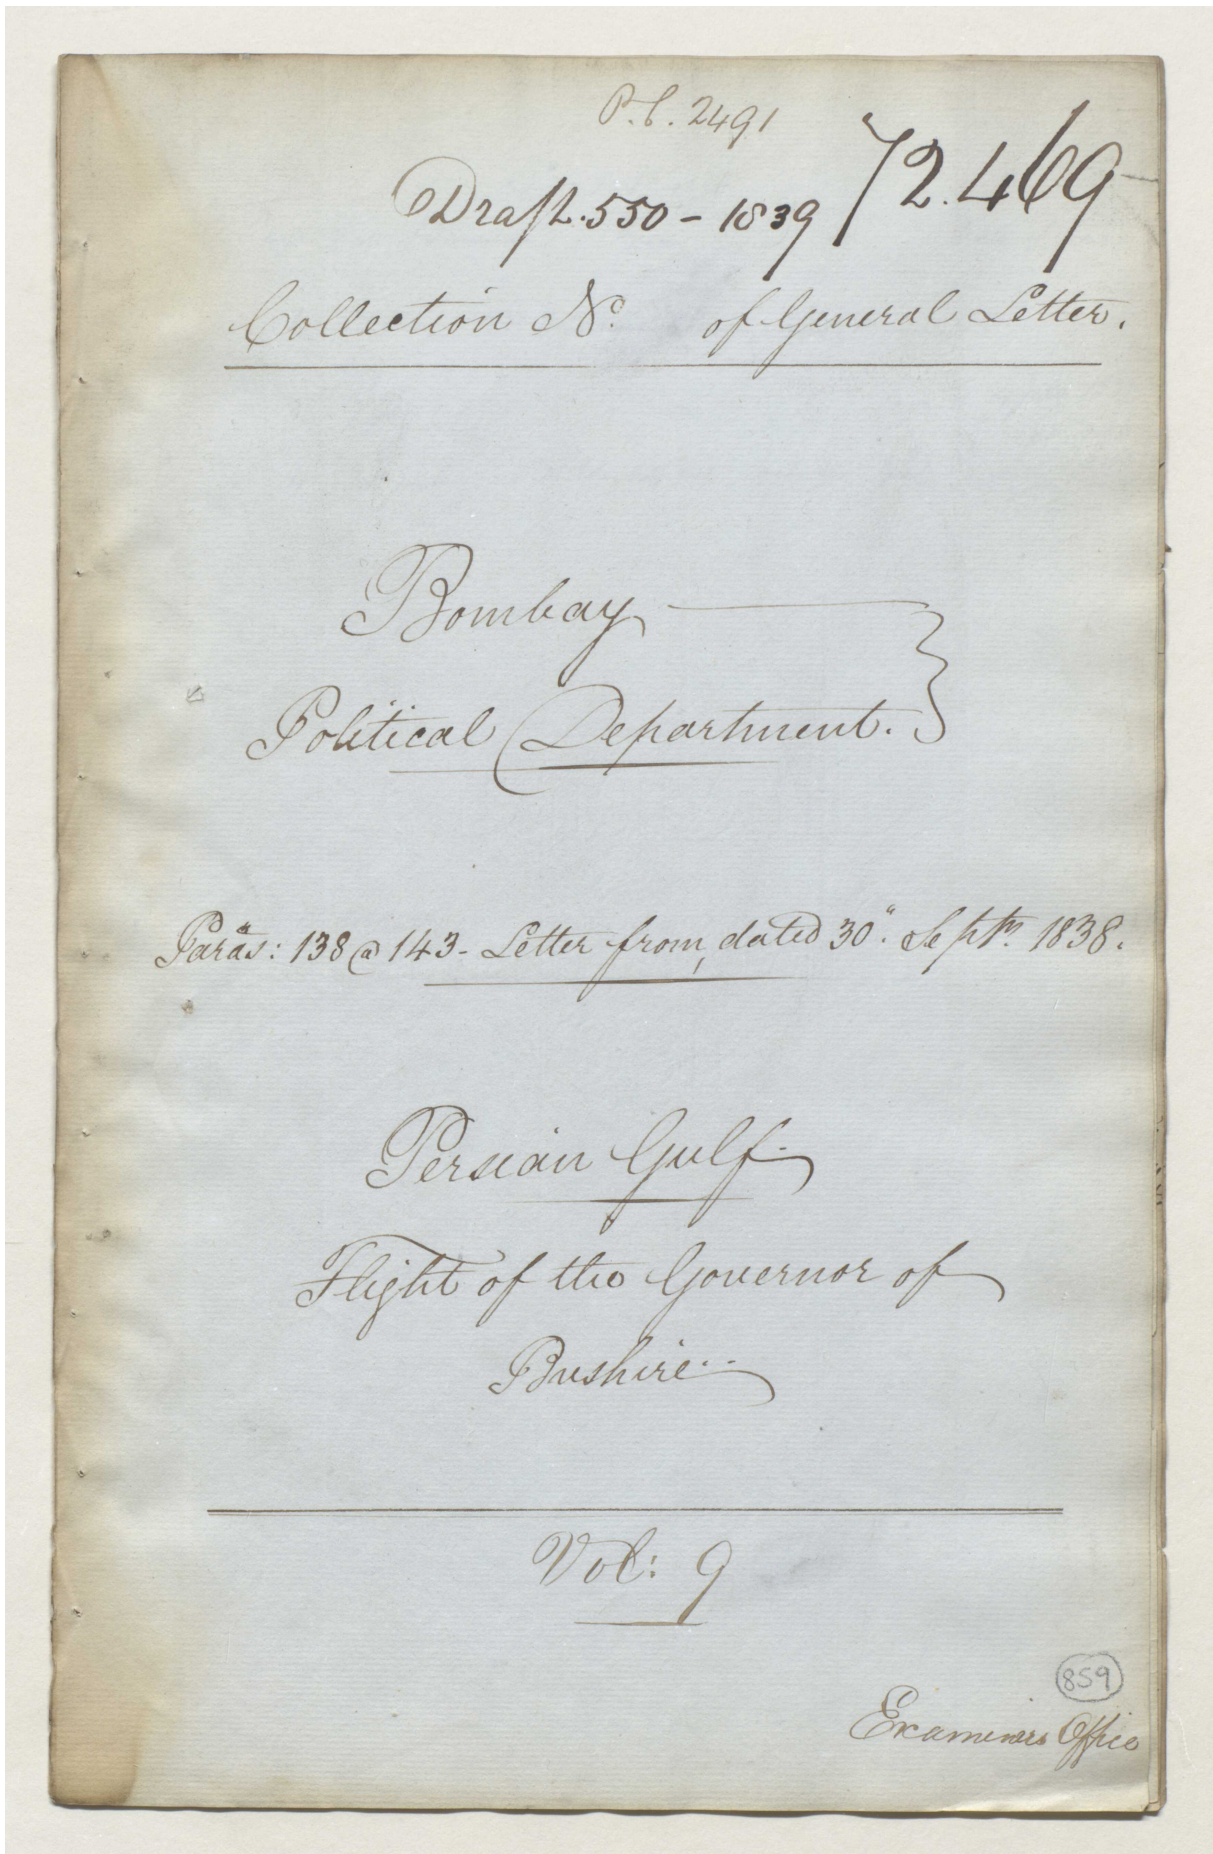 P.C. 2491
72.469
Draft. 550 - 1839
Collection No. of General Letter.
Bombay
Political Department. }
Paras: 138 @ 143 - Letter from, dated 30". Septr. 1838.
Persian Gulf.
Flight of the Governor of
Bushire..
Vol: 9
859
Examiners Office